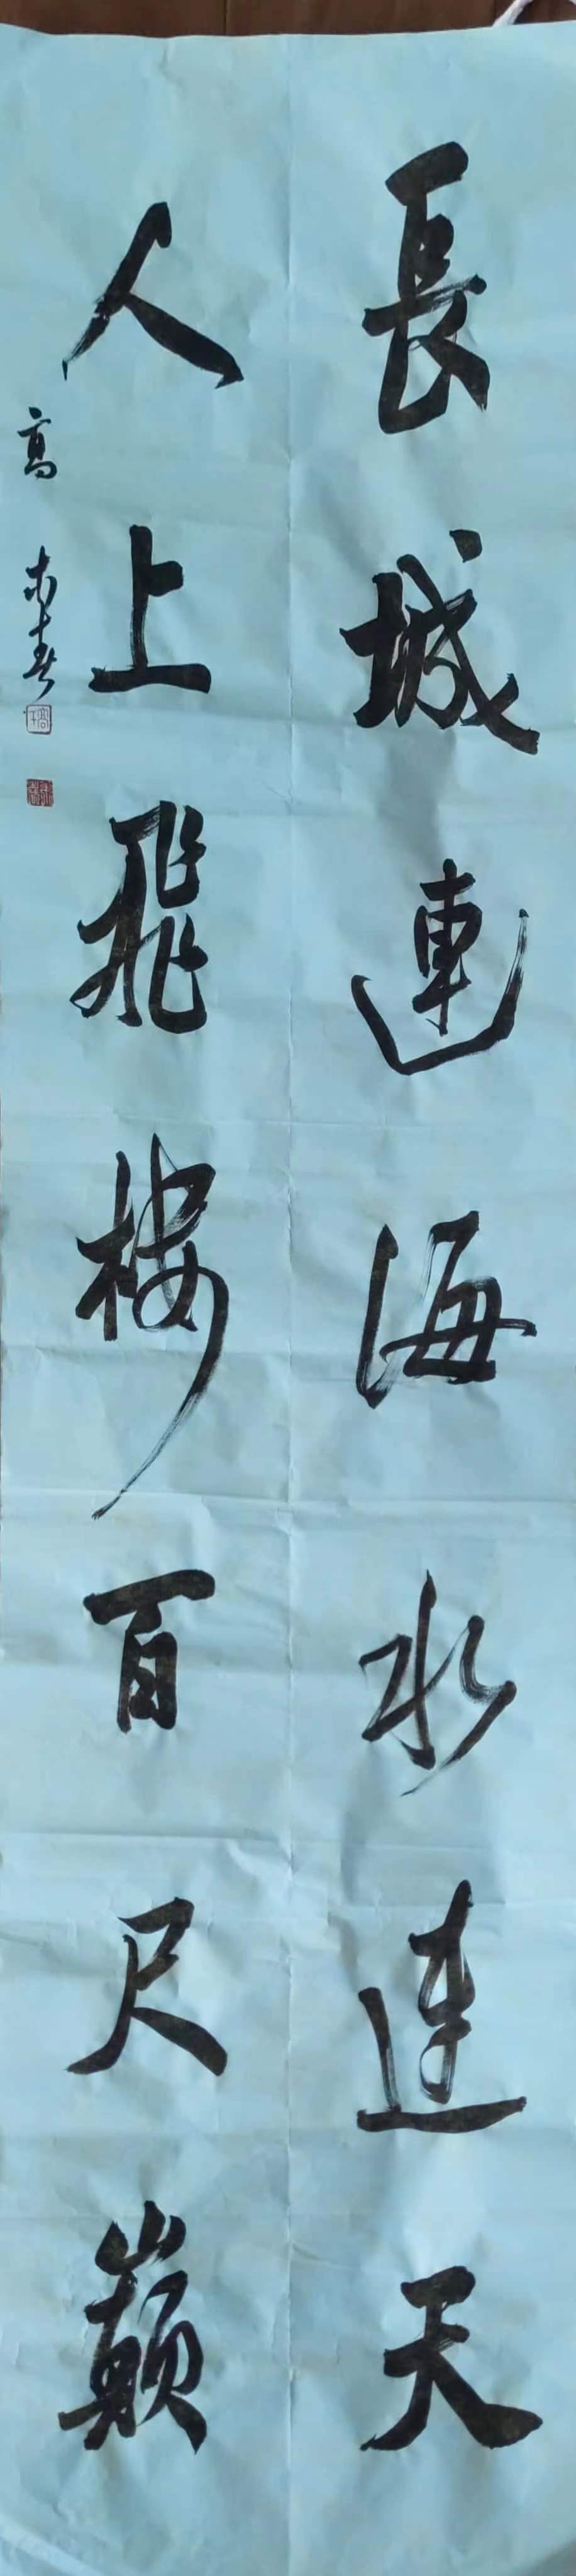 長城連海水連天
人上飛楼百尺巔
高